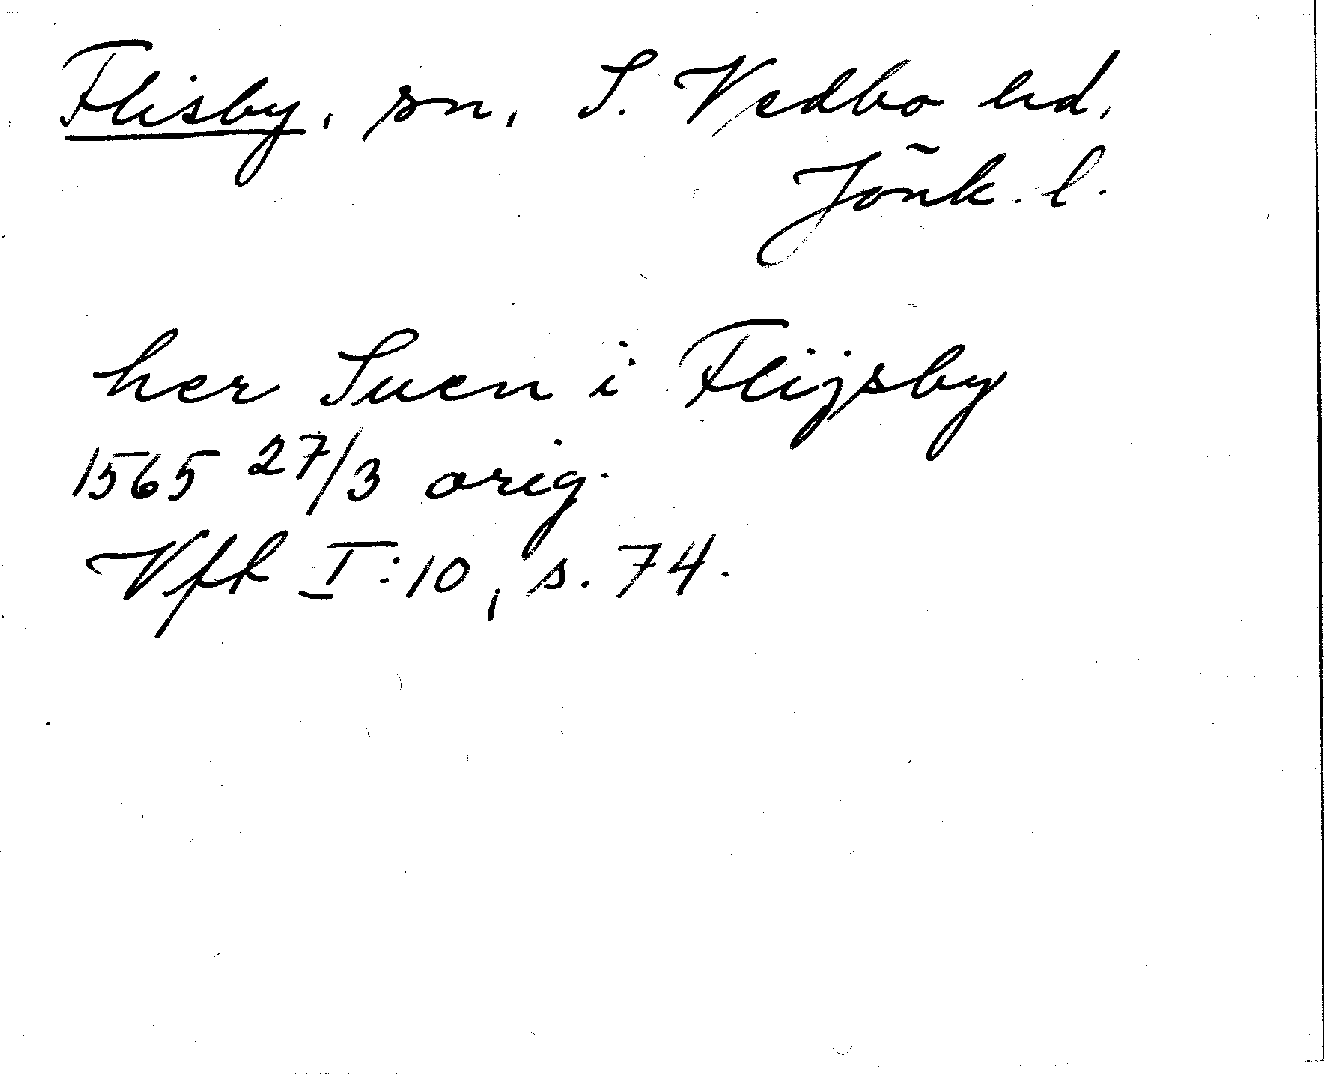 Flisby, sn, S. Vedbo hd,
Jönk. l.
her Suen i Flijsby
1565 27/3 orig.
Vfh I:10, s. 74.